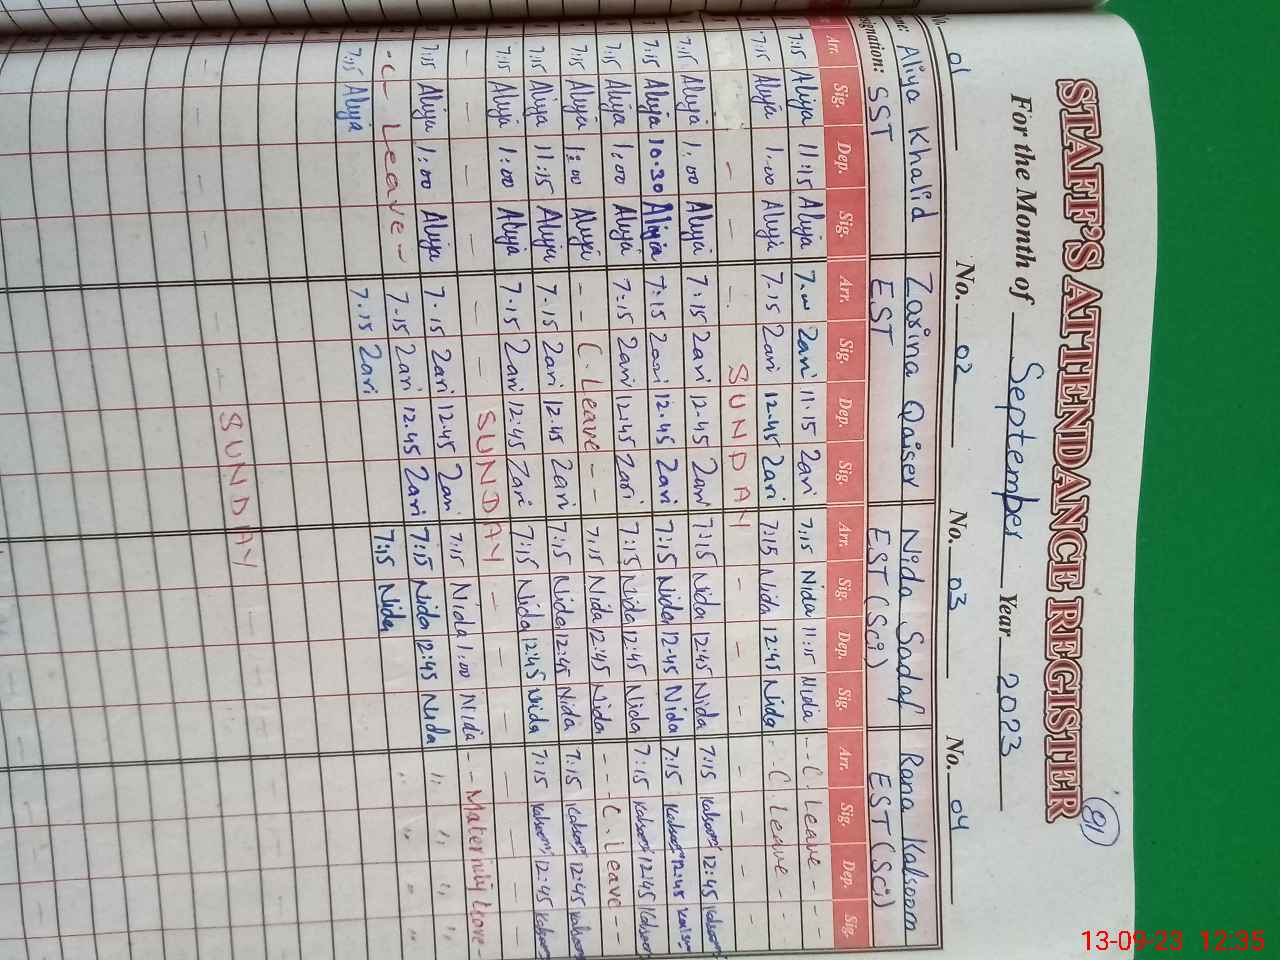 81
STAFF'S ATTENDANCE REGISTER
For the Month of September Year 2023
No. 01 No. 02 No. 03 No. 04
Aliya Khalid Zarina Qaiser Nida Sadaf Rana Kalsoom
signation: SST EST EST (Sci) EST (Sci)
Arr. Sig. Dep. Sig. Arr. Sig. Dep. Sig. Arr. Sig. Dep. Sig. Arr. Sig. Dep. Sig.
7:15 Aliya 11:15 Aliya 7.00 Zari 11:15 Zari 7:15 Nida 11:15 Nida -- C. Leave --
7:15 Aliya 1:00 Aliya 7.15 Zari 12.45 Zari 7:15 Nida 12:45 Nida -- C. Leave --
- - - SUNDAY - - - - - -
7:15 Aliya 1:00 Aliya 7:15 Zari 12.45 Zari 7:15 Nida 12:45 Nida 7:15 Kalsoom 12:45 Kalsoom
7:15 Aliya 10:30 Aliya 7:15 Zari 12.45 Zari 7:15 Nida 12:45 Nida 7:15 Kalsoom 12:45 Kalsoom
7:15 Aliya 1:00 Aliya 7:15 Zari 12:45 Zari 7:15 Nida 12:45 Nida 7:15 Kalsoom 12:45 Kalsoom
7:15 Aliya 1:00 Aliya -- C. Leave -- 7:15 Nida 12:45 Nida --- C. Leave --
7:15 Aliya 11:15 Aliya 7.15 Zari 12.45 Zari 7:15 Nida 12:45 Nida 7:15 Kalsoom 12:45 Kalsoom
7:15 Aliya 1:00 Aliya 7.15 Zari 12:45 Zari 7:15 Nida 12:45 Nida 7:15 Kalsoom 12:45 Kalsoom
- - - - - - SUNDAY - - - - -
7:15 Aliya 1:00 Aliya 7.15 Zari 12.45 Zari 7:15 Nida 1:00 Nida -- Maternity Leave -
- C Leave - 7-15 Zari 12.45 Zari 7:15 Nida 12:45 Nida " " " "
7:15 Aliya 7.15 Zari 7:15 Nida " " " "
SUNDAY
13-09-23 12:35